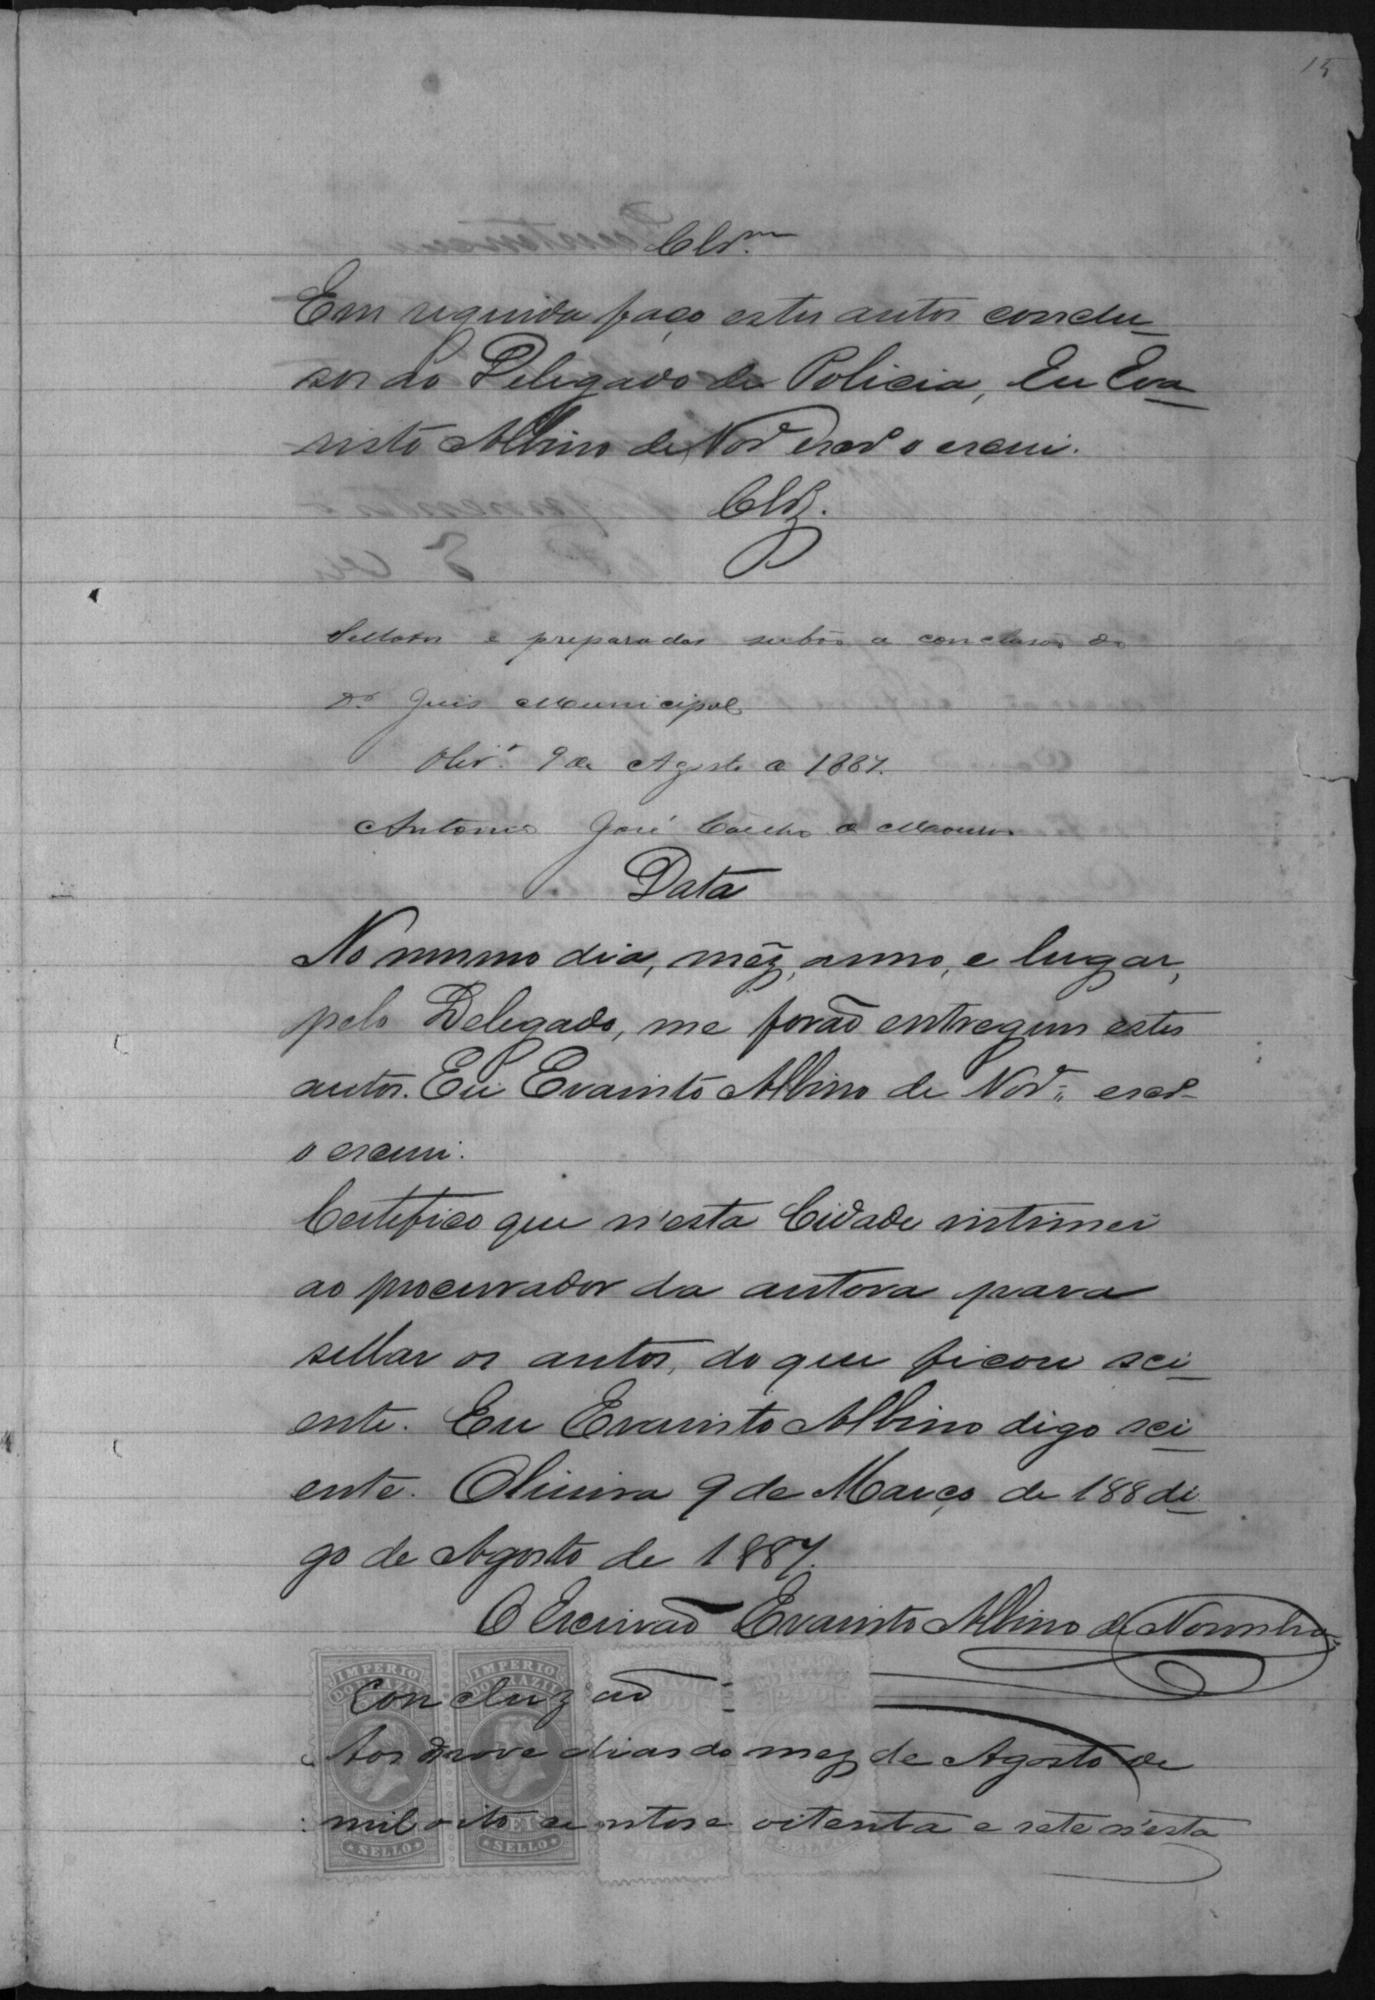 15
Clsm.
Em seguida faço estes autos conclu-
sos ao Delegado de Policia, Eu Eva-
risto Albino de Nor.ª escr.º o escrevi.
Cls.
Sellados e preparados subão a conclusão do
Dr. Juis Municipal
Oliv.ª 9 de Agosto de 1887.
Antonio José Coelho de Moura
Data
No mesmo dia, mêz, anno, e lugar,
pelo Delegado, me forão entregues estes
autos. Eu Evaristo Albino de Nor.ª escr.º
o escrevi.
Certifico que n'esta Cidade intimei
ao procurador da autora para
sellar os autos, do que ficou sci-
ente. Eu Evaristo Albino digo sci-
ente. Oliveira 9 de Março de 188 di-
go de Agosto de 1887.
O Escrivão Evaristo Albino de Noronha
IMPERIO IMPERIO
DO BRAZIL DO BRAZIL
Concluzão
Aos nove dias do mez de Agosto de
mil oito centos e oitenta e sete n'esta
SELLO SELLO